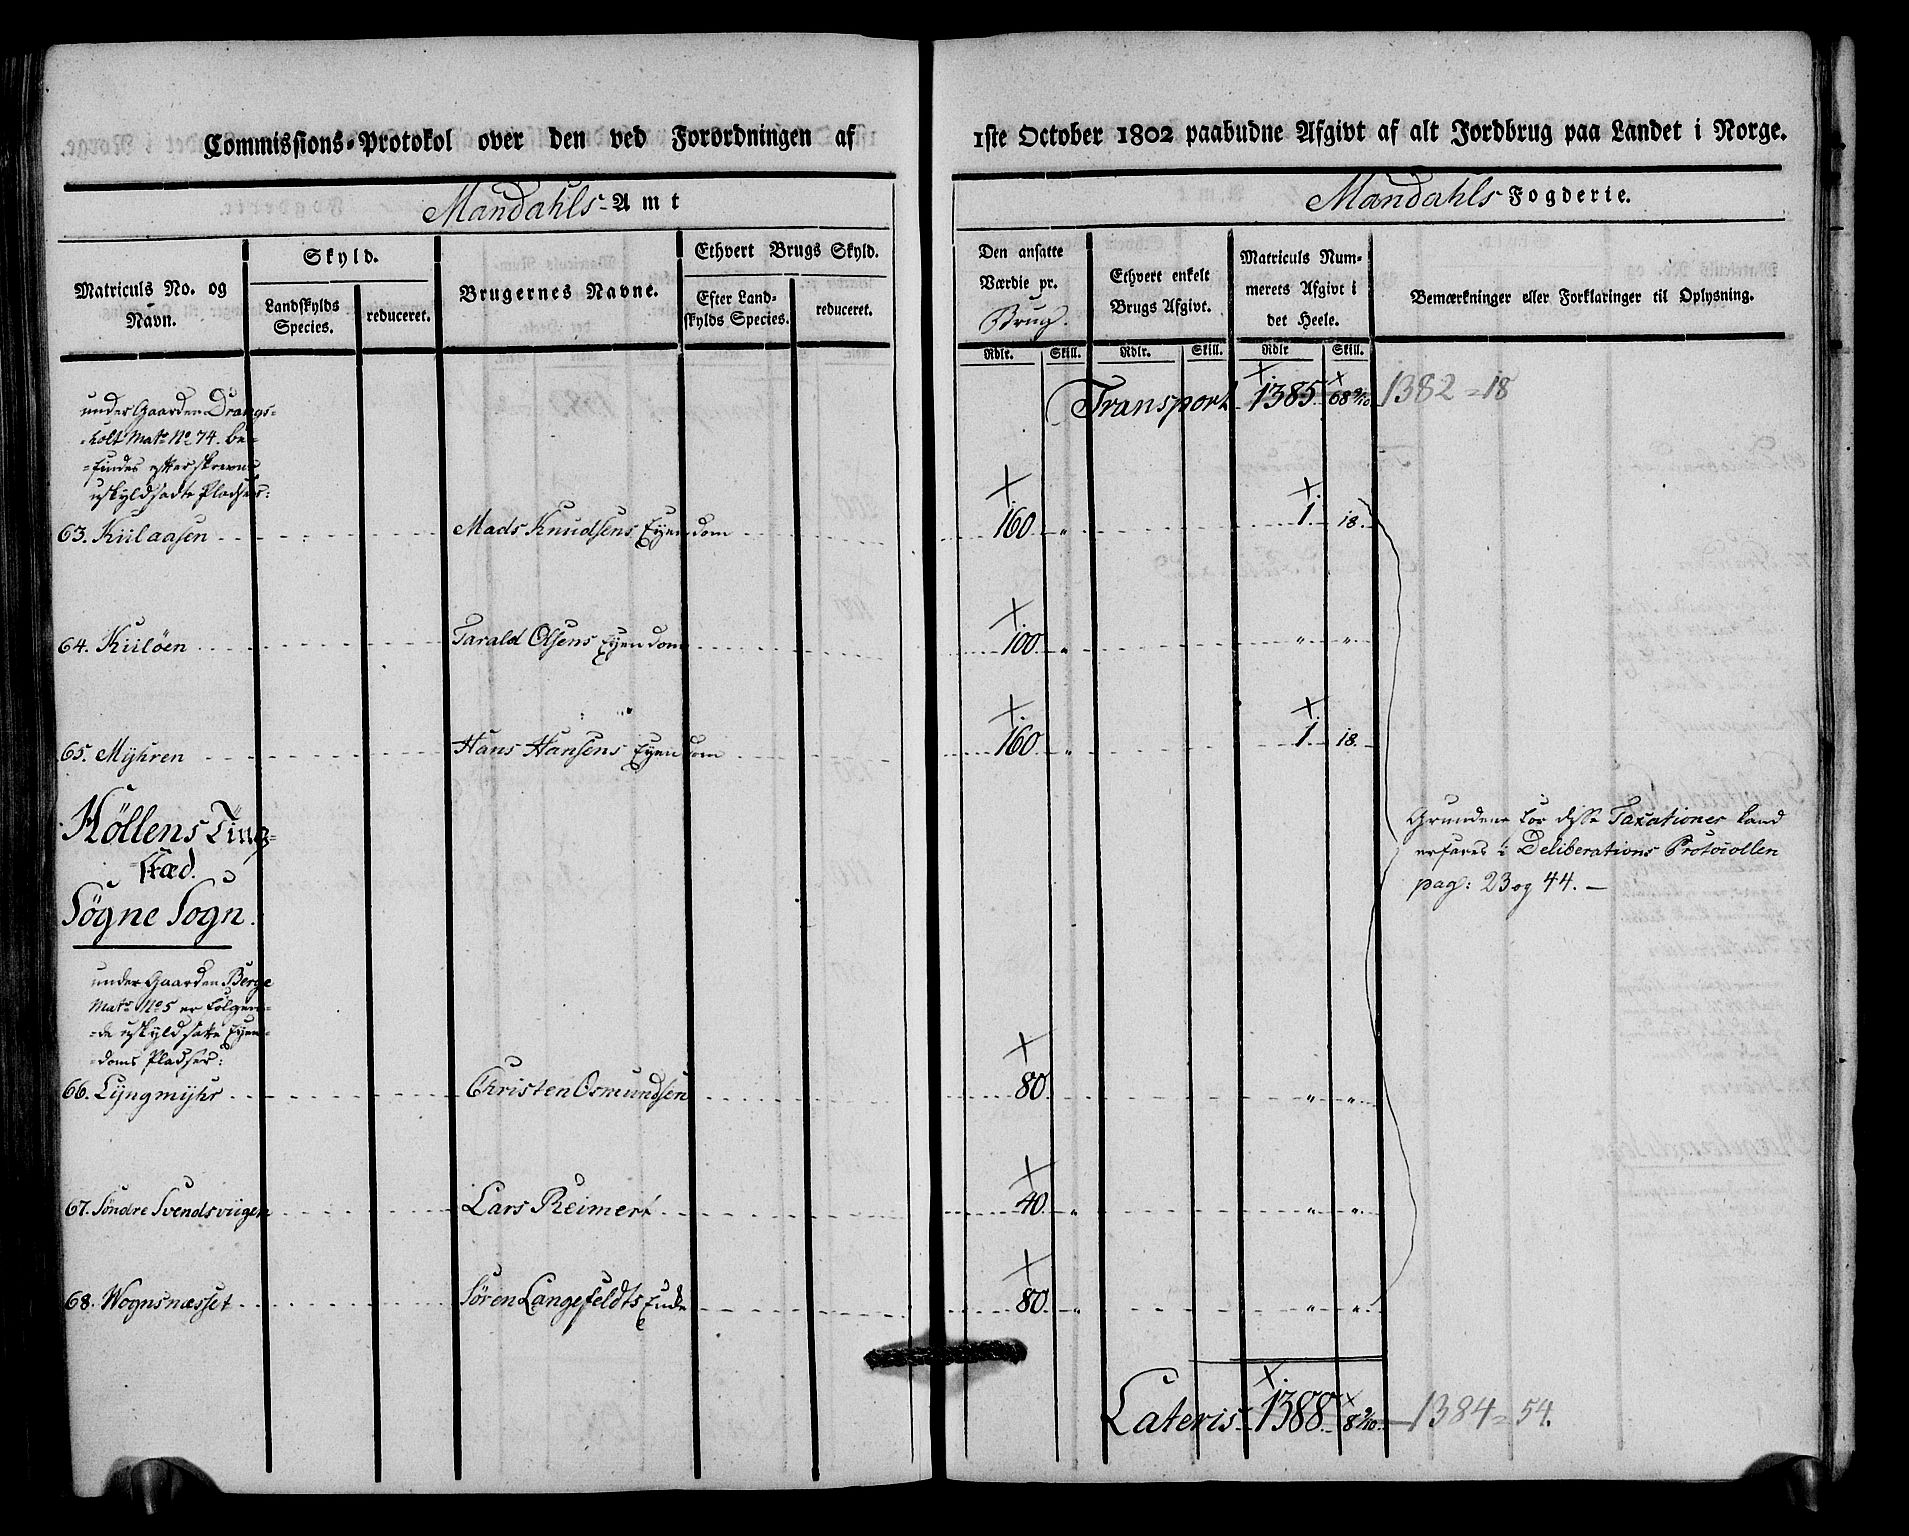 Commissions-Protokol over den ved Forordningen af
Mandahls Amt
Matriculs No. og Navn.
Skyld.
Landskylds Species.
reduceret.
Brugernes Navne.
Ethvert Brugs Skyld.
Efter Landskylds Species.
reduceret.
under Gaarden Drangs-
holt Mats No 74. be-
findes efterskrevne
uskyldsadte Pladser:
63. Kiilaasen Mads Knudsens Eyendom
64. Kiiløen Tarald Olsens Eyendom
65. Myhren Hans Hansens Eyendom
Høllens Ting-
stæd.
Søgne Sogn.
under Gaarden Berge
Mats No 5 er følgen-
de uskyldsatte Eyen-
doms Pladser:
66. Lyngmyhr Christen Osmundsen
67. Søndre Svendsviigen Lars Reimert
68. Wognsnæsset Søren Langefeldts Enke
1ste October 1802 paabudne Afgivt af alt Jordbrug paa Landet i Norge.
Mandahls Fogderie.
Den ansatte Værdie pr. Brug.
Ethvert enkelt Brugs Afgivt.
Matriculs Nummerets Afgivt i det Heele.
Bemærkninger eller Forklaringer til Oplysning.
Rdlr. Skill. Rdlr. Skill. Rdlr Skill.
Transport 1385 68 9/10 1382 = 18
160 " 1. 18.
100 " " "
160 " 1. 18.
Grundene for disse Taxationer kand
erfares i Deliberations Protocollen
pag: 23 og 44. —
80. " "
40. " " "
80. " " "
Lateris 1388. 8 9/10. 1384 = 54.